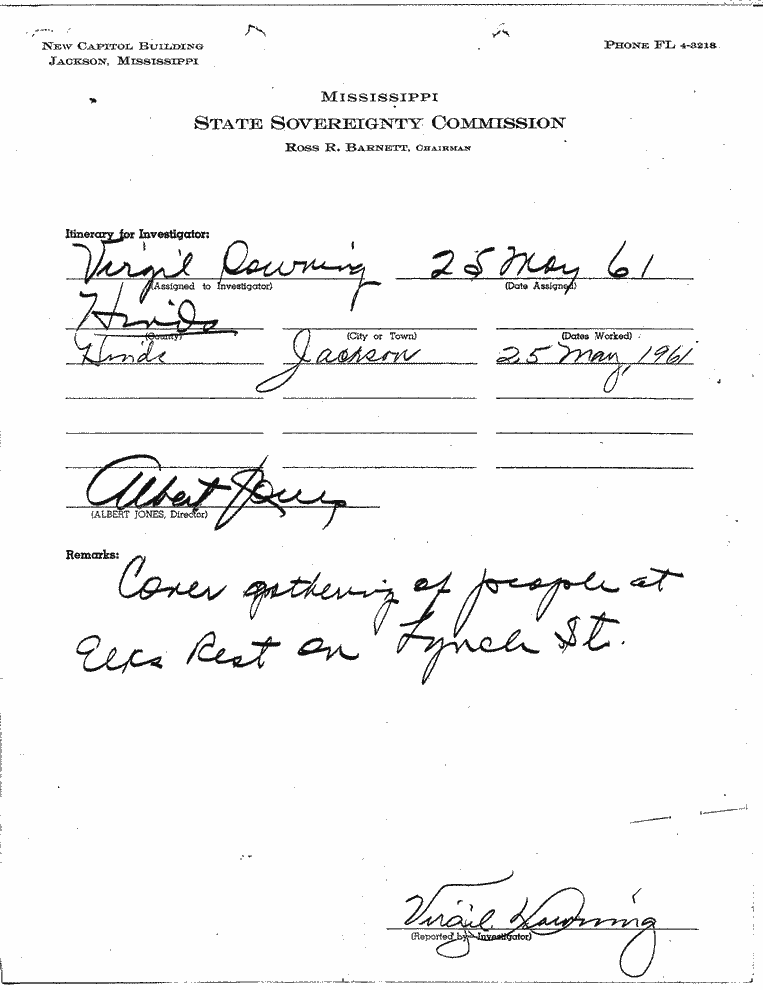 NEW CAPITOL BUILDING
JACKSON, MISSISSIPPI
PHONE FL 4-3218
MISSISSIPPI
STATE SOVEREIGNTY COMMISSION
ROSS R. BARNETT, CHAIRMAN
Itinerary for Investigator:
Virgil Downing 25 May 61
(Assigned to Investigator) (Date Assigned)
Hinds
(County) (City or Town) (Dates Worked)
Hinds Jackson 25 May, 1961
Albert Jones
(ALBERT JONES, Director)
Remarks:
Cover gathering of people at
Elks Rest on Lynch St.
Virgil Downing
(Reported by Investigator)